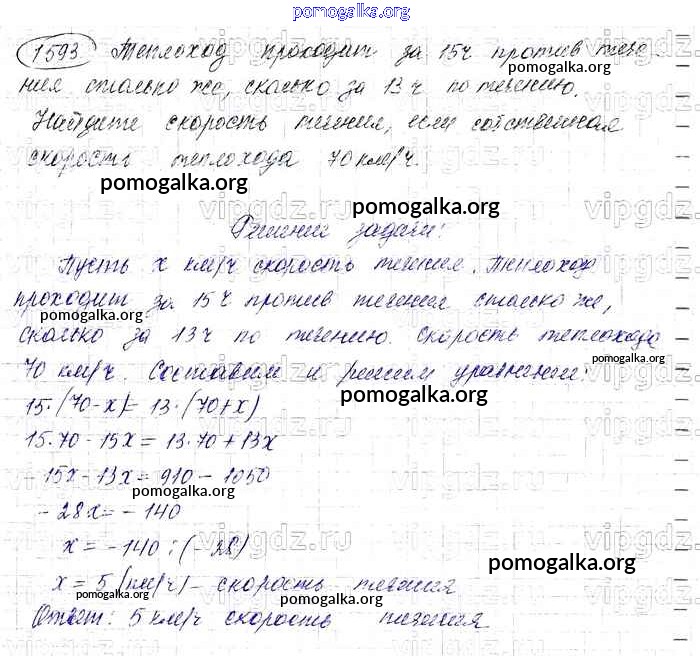 pomogalka.org
1593 Теплоход проходит за 15ч против тече-
ния столько же, сколько за 13ч по течению.
pomogalka.org
Найдите скорость течения, если собственная
скорость теплохода 70 км/ч.
pomogalka.org
pomogalka.org
Решение задачи:
Пусть x км/ч скорость течения. Теплоход
pomogalka.org
проходит за 15ч против течения столько же,
pomogalka.org
сколько за 13ч по течению. Скорость теплохода
70 км/ч. Составим и решим уравнение:
pomogalka.org
pomogalka.org
15·(70-x)=13·(70+x)
15·70-15x=13·70+13x
-15x-13x=910-1050
pomogalka.org
-28x=-140
x=-140:(-28)
pomogalka.org
x=5 (км/ч)- скорость течения
pomogalka.org
pomogalka.org
Ответ: 5 км/ч скорость течения
vipgdz.ru